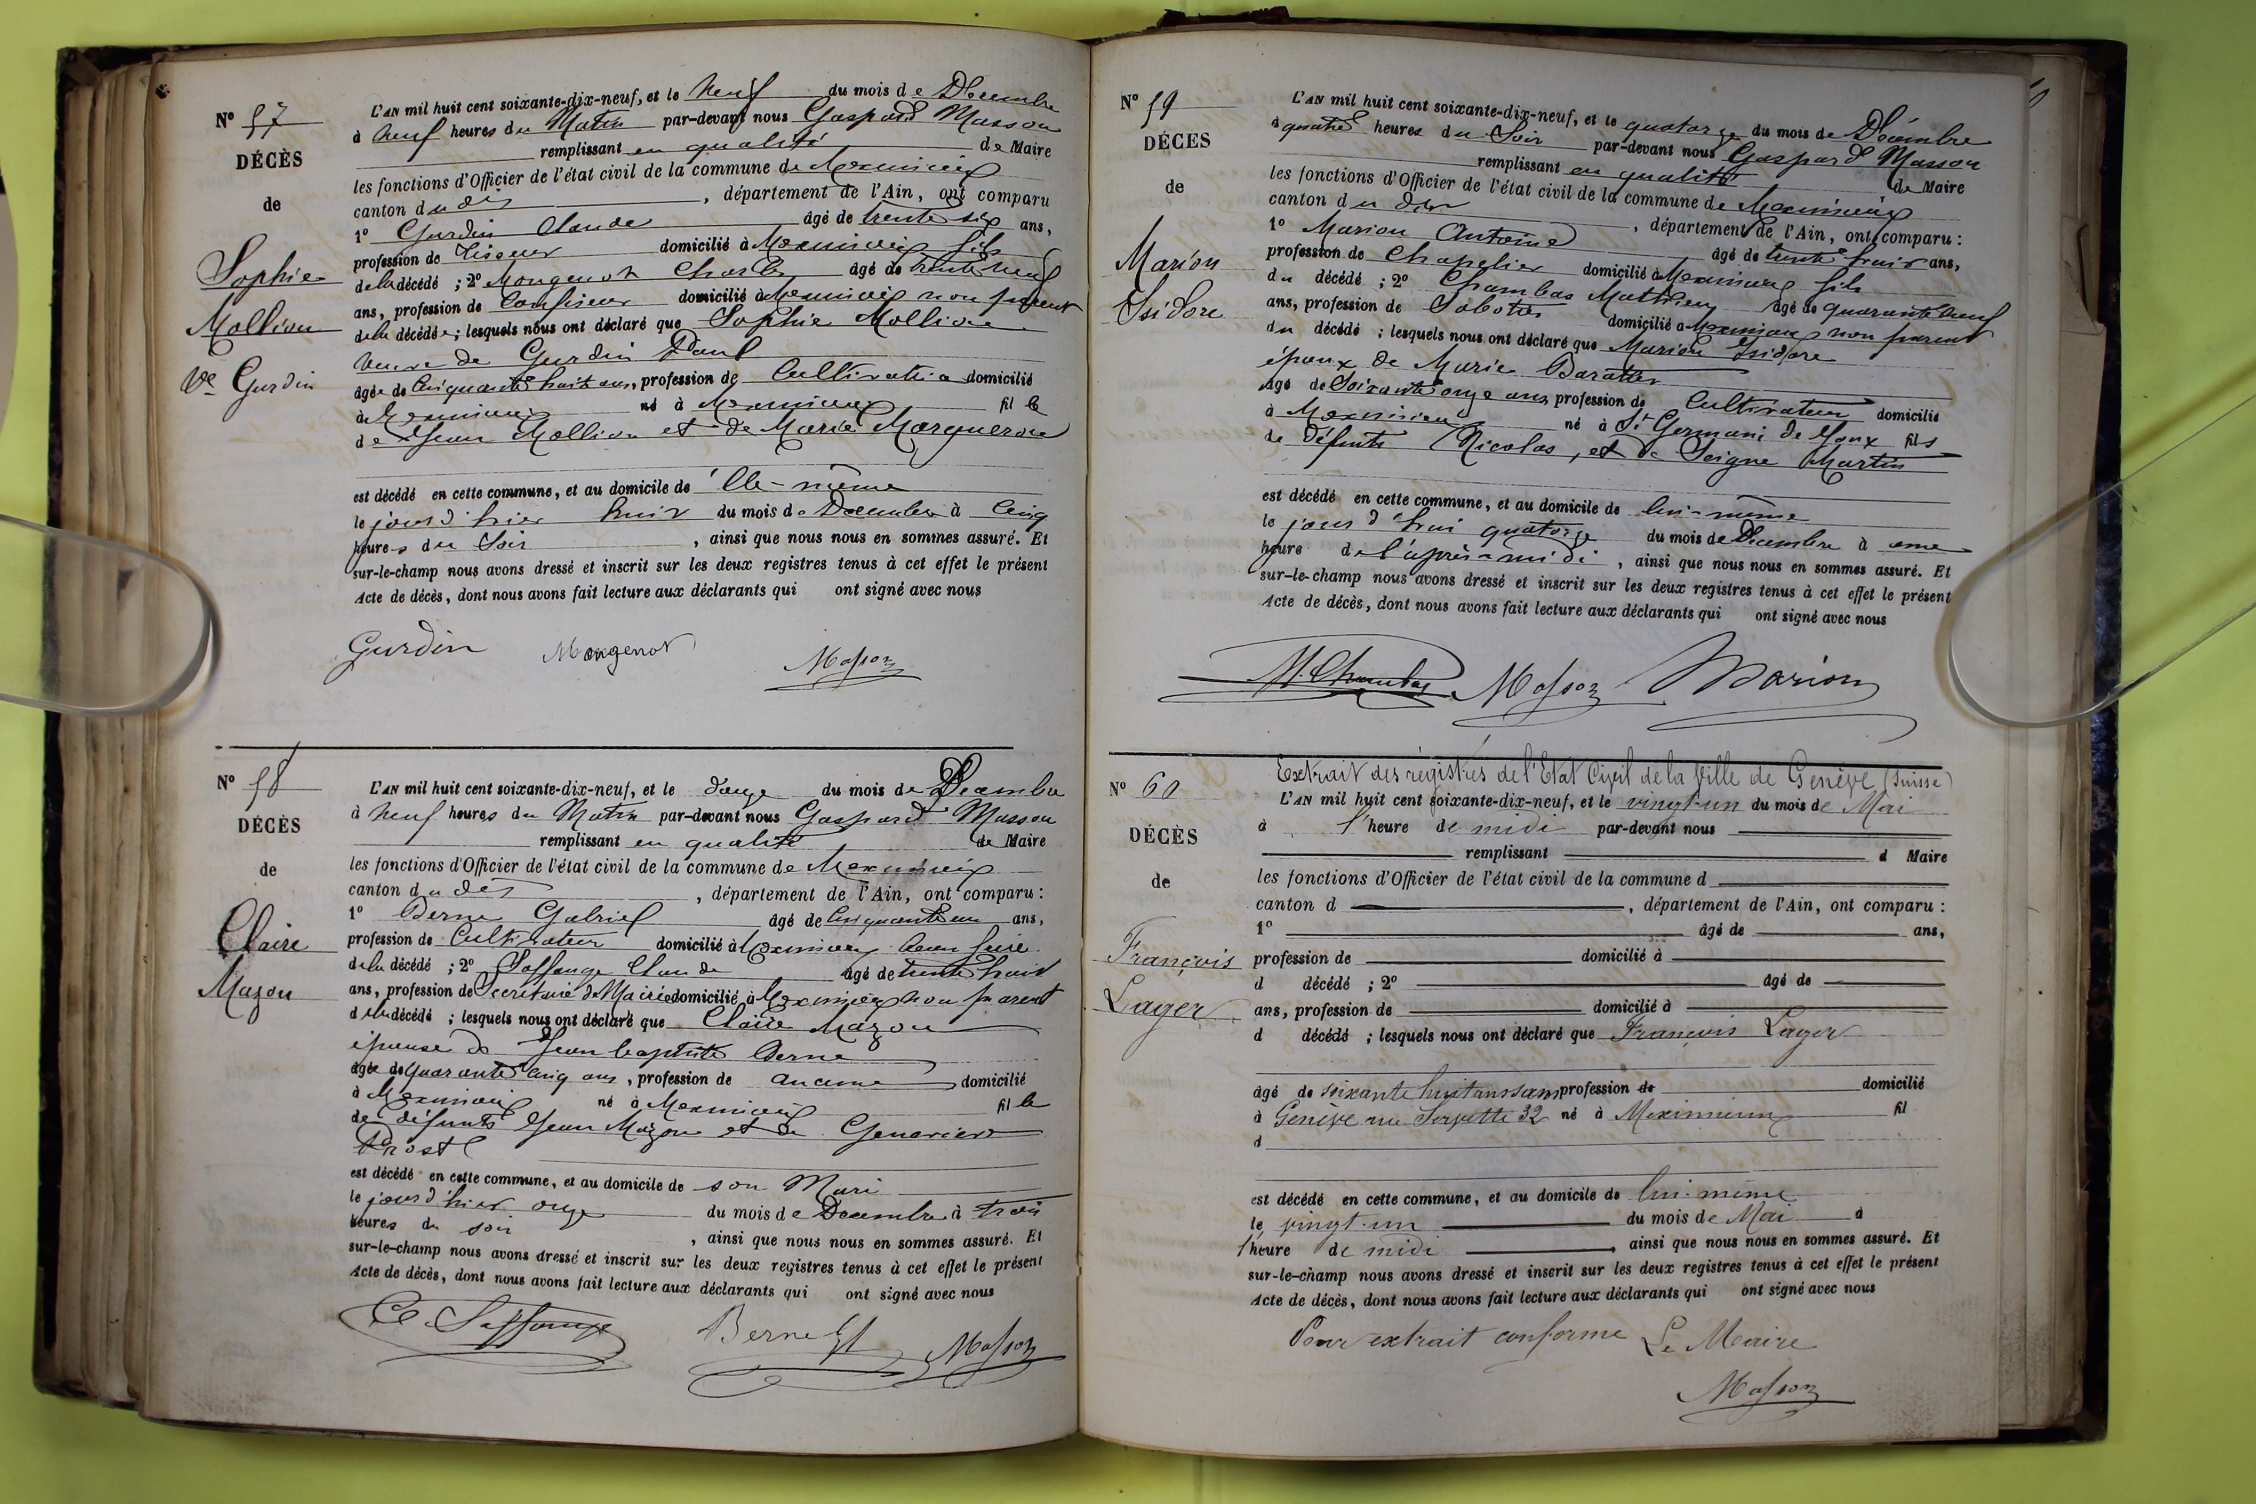 N° 57
DÉCÈS
de
Sophie
Mollion
Ve Gurdin
L'AN mil huit cent soixante-dix-neuf, et le Neuf du mois de Décembre
à Neuf heures du Matin par-devant nous Gaspard Masson
remplissant en qualité de Maire
les fonctions d'Officier de l'état civil de la commune de Meximieux
canton du dit, département de l'Ain, ont comparu
1° Gurdin Claude âgé de trente six ans,
profession de domicilié à Meximieux fils
de la décédé ; 2° Mougenot Charles âgé de trente neuf
ans, profession de Confiseur domicilié à Meximieux non parent
de la décédée ; lesquels nous ont déclaré que Sophie Mollion
veuve de Gurdin Paul
âgée de Cinquante huit ans, profession de Cultivatrice domicilié
à Meximieux né à Meximieux fille
de Jean Mollion et de Marie Margueron
est décédé en cette commune, et au domicile de Elle-même
le jour d'hier huit du mois de Décembre à Cinq
heures du Soir, ainsi que nous nous en sommes assuré. Et
sur-le-champ nous avons dressé et inscrit sur les deux registres tenus à cet effet le présent
Acte de décès, dont nous avons fait lecture aux déclarants qui ont signé avec nous
Gurdin Mougenot Masson
N° 58
DÉCÈS
de
Claire
Mazon
L'AN mil huit cent soixante-dix-neuf, et le douze du mois de Décembre
à Neuf heures du Matin par-devant nous Gaspard Masson
remplissant en qualité de Maire
les fonctions d'Officier de l'état civil de la commune de Meximieux
canton du dit, département de l'Ain, ont comparu :
1° Berne Gabriel âgé de Cinquante un ans,
profession de Cultivateur domicilié à Meximieux beau frère
de la décédé ; 2° Saffange Claude âgé de trente huit
ans, profession de Secrétaire de Mairie domicilié à Meximieux non parent
de la décédé ; lesquels nous ont déclaré que Claire Mazon
épouse de Jean baptiste Berne
âgée de quarante cinq ans, profession de aucune domicilié
à Meximieux né à Meximieux fille
de défunts Jean Mazon et de Geneviève
Prost
est décédé en cette commune, et au domicile de son Mari
le jour d'hier onze du mois de Décembre à trois
heures du soir, ainsi que nous nous en sommes assuré. Et
sur-le-champ nous avons dressé et inscrit sur les deux registres tenus à cet effet le présent
Acte de décès, dont nous avons fait lecture aux déclarants qui ont signé avec nous
C. Saffange Berne Masson
N° 59
DÉCÈS
de
Marion
Isidore
L'AN mil huit cent soixante-dix-neuf, et le quatorze du mois de Décembre
à quatre heures du Soir par-devant nous Gaspard Masson
remplissant en qualité de Maire
les fonctions d'Officier de l'état civil de la commune de Meximieux
canton du dit, département de l'Ain, ont comparu :
1° Marion Antoine âgé de trente huit ans,
profession de Chapelier domicilié à Meximieux fils
du décédé ; 2° Chambas Mathieu âgé de quarante neuf
ans, profession de Sabotier domicilié à Meximieux non parent
du décédé ; lesquels nous ont déclaré que Marion Isidore
époux de Marie Baratier
âgé de Soixante onze ans, profession de Cultivateur domicilié
à Meximieux né à St Germain de fils
de défunts Nicolas, et de Martin
est décédé en cette commune, et au domicile de lui-même
le jour d'hui quatorze du mois de Décembre à une
heure de l'après-midi, ainsi que nous nous en sommes assuré. Et
sur-le-champ nous avons dressé et inscrit sur les deux registres tenus à cet effet le présent
Acte de décès, dont nous avons fait lecture aux déclarants qui ont signé avec nous
M. Chambas Masson Marion
Extrait des registres de l'Etat Civil de la Ville de Genève (Suisse)
N° 60
DÉCÈS
de
François
Lager
L'AN mil huit cent soixante-dix-neuf, et le vingt-un du mois de Mai
à l'heure de midi par-devant nous
remplissant d Maire
les fonctions d'Officier de l'état civil de la commune d
canton d , département de l'Ain, ont comparu :
1° âgé de ans,
profession de domicilié à
d décédé ; 2° âgé de
ans, profession de domicilié à
d décédé ; lesquels nous ont déclaré que François Lager
âgé de soixante huit ans sans profession de domicilié
à Genève rue Servette 32 né à Meximieux fil
d
est décédé en cette commune, et au domicile de lui-meme
le vingt-un du mois de Mai à
l'heure de midi, ainsi que nous nous en sommes assuré. Et
sur-le-champ nous avons dressé et inscrit sur les deux registres tenus à cet effet le présent
Acte de décès, dont nous avons fait lecture aux déclarants qui ont signé avec nous
Pour extrait conforme Le Maire
Masson